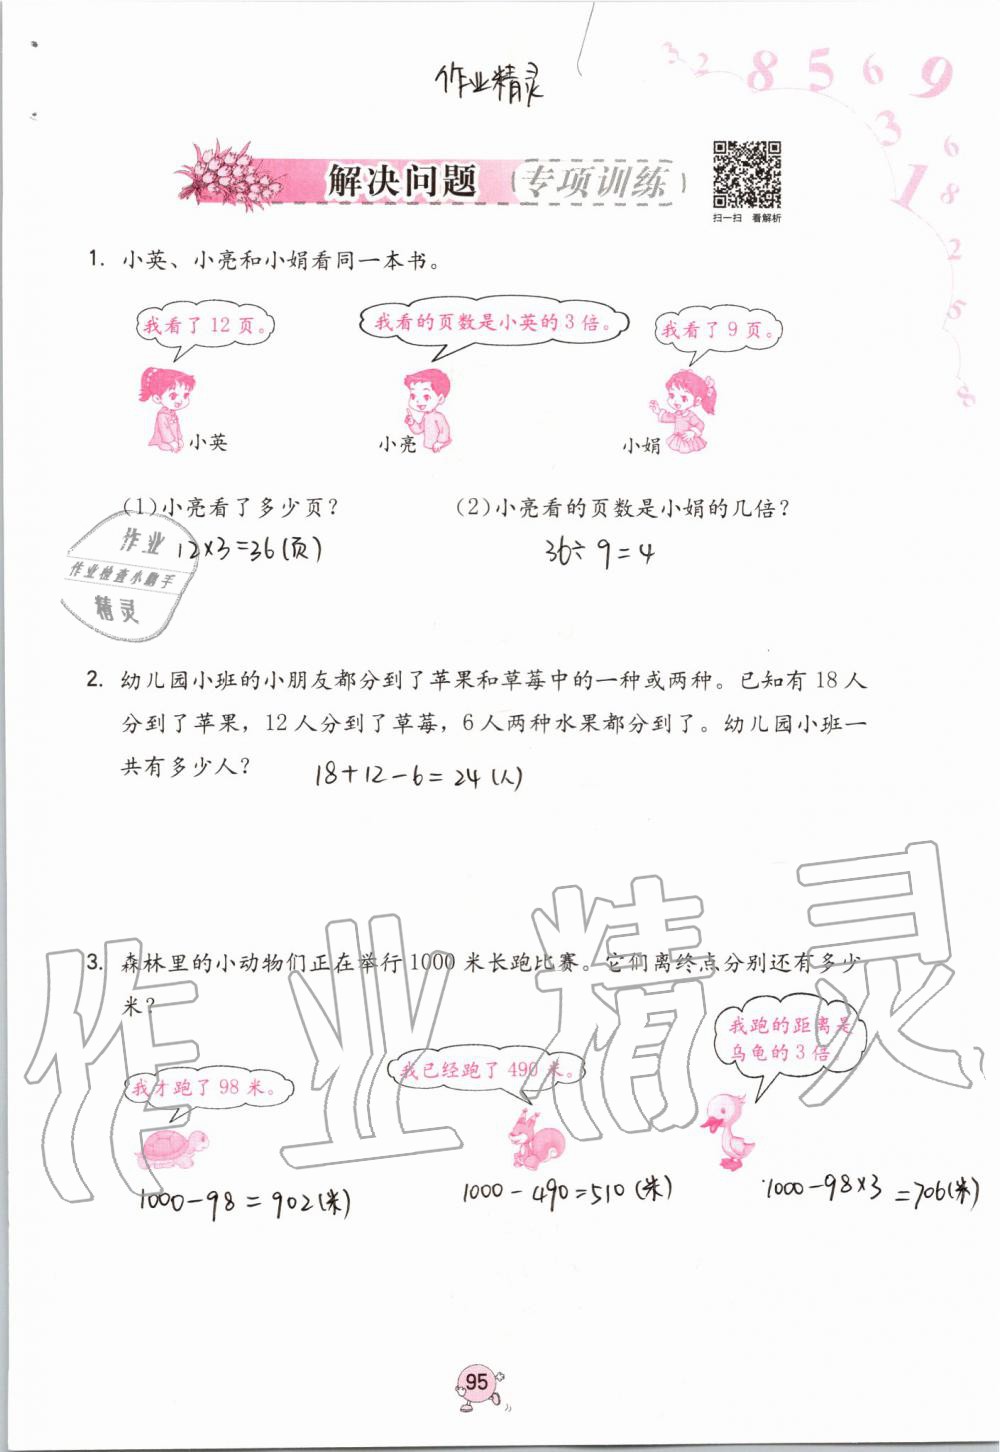 作业精灵
3 2 8 5 6 9
3 1 6 8 2 5 8
解决问题 专项训练
扫一扫 看解析
1. 小英、小亮和小娟看同一本书。
我看了 12 页。
我看的页数是小英的 3 倍。
我看了 9 页。
小英
小亮
小娟
(1)小亮看了多少页？ (2)小亮看的页数是小娟的几倍？
12×3=36(页) 36÷9=4
作业
作业检查小帮手
精灵
2. 幼儿园小班的小朋友都分到了苹果和草莓中的一种或两种。已知有 18 人
分到了苹果，12 人分到了草莓，6 人两种水果都分到了。幼儿园小班一
共有多少人？
18+12-6=24(人)
作业精灵
3. 森林里的小动物们正在举行 1000 米长跑比赛。它们离终点分别还有多少
米？
我才跑了 98 米。
我已经跑了 490 米。
我跑的距离是
乌龟的 3 倍。
1000-98=902(米) 1000-490=510(米) 1000-98×3=706(米)
95